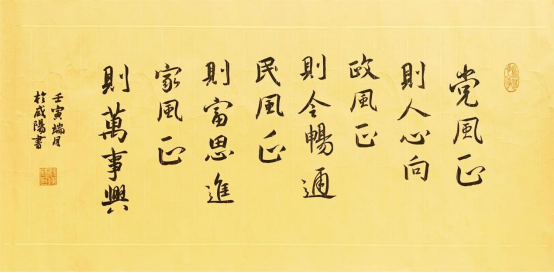 党風正
則人心向
政風正
則令暢通
民風正
則富思進
家風正
則萬事興
壬寅端月
於咸陽書